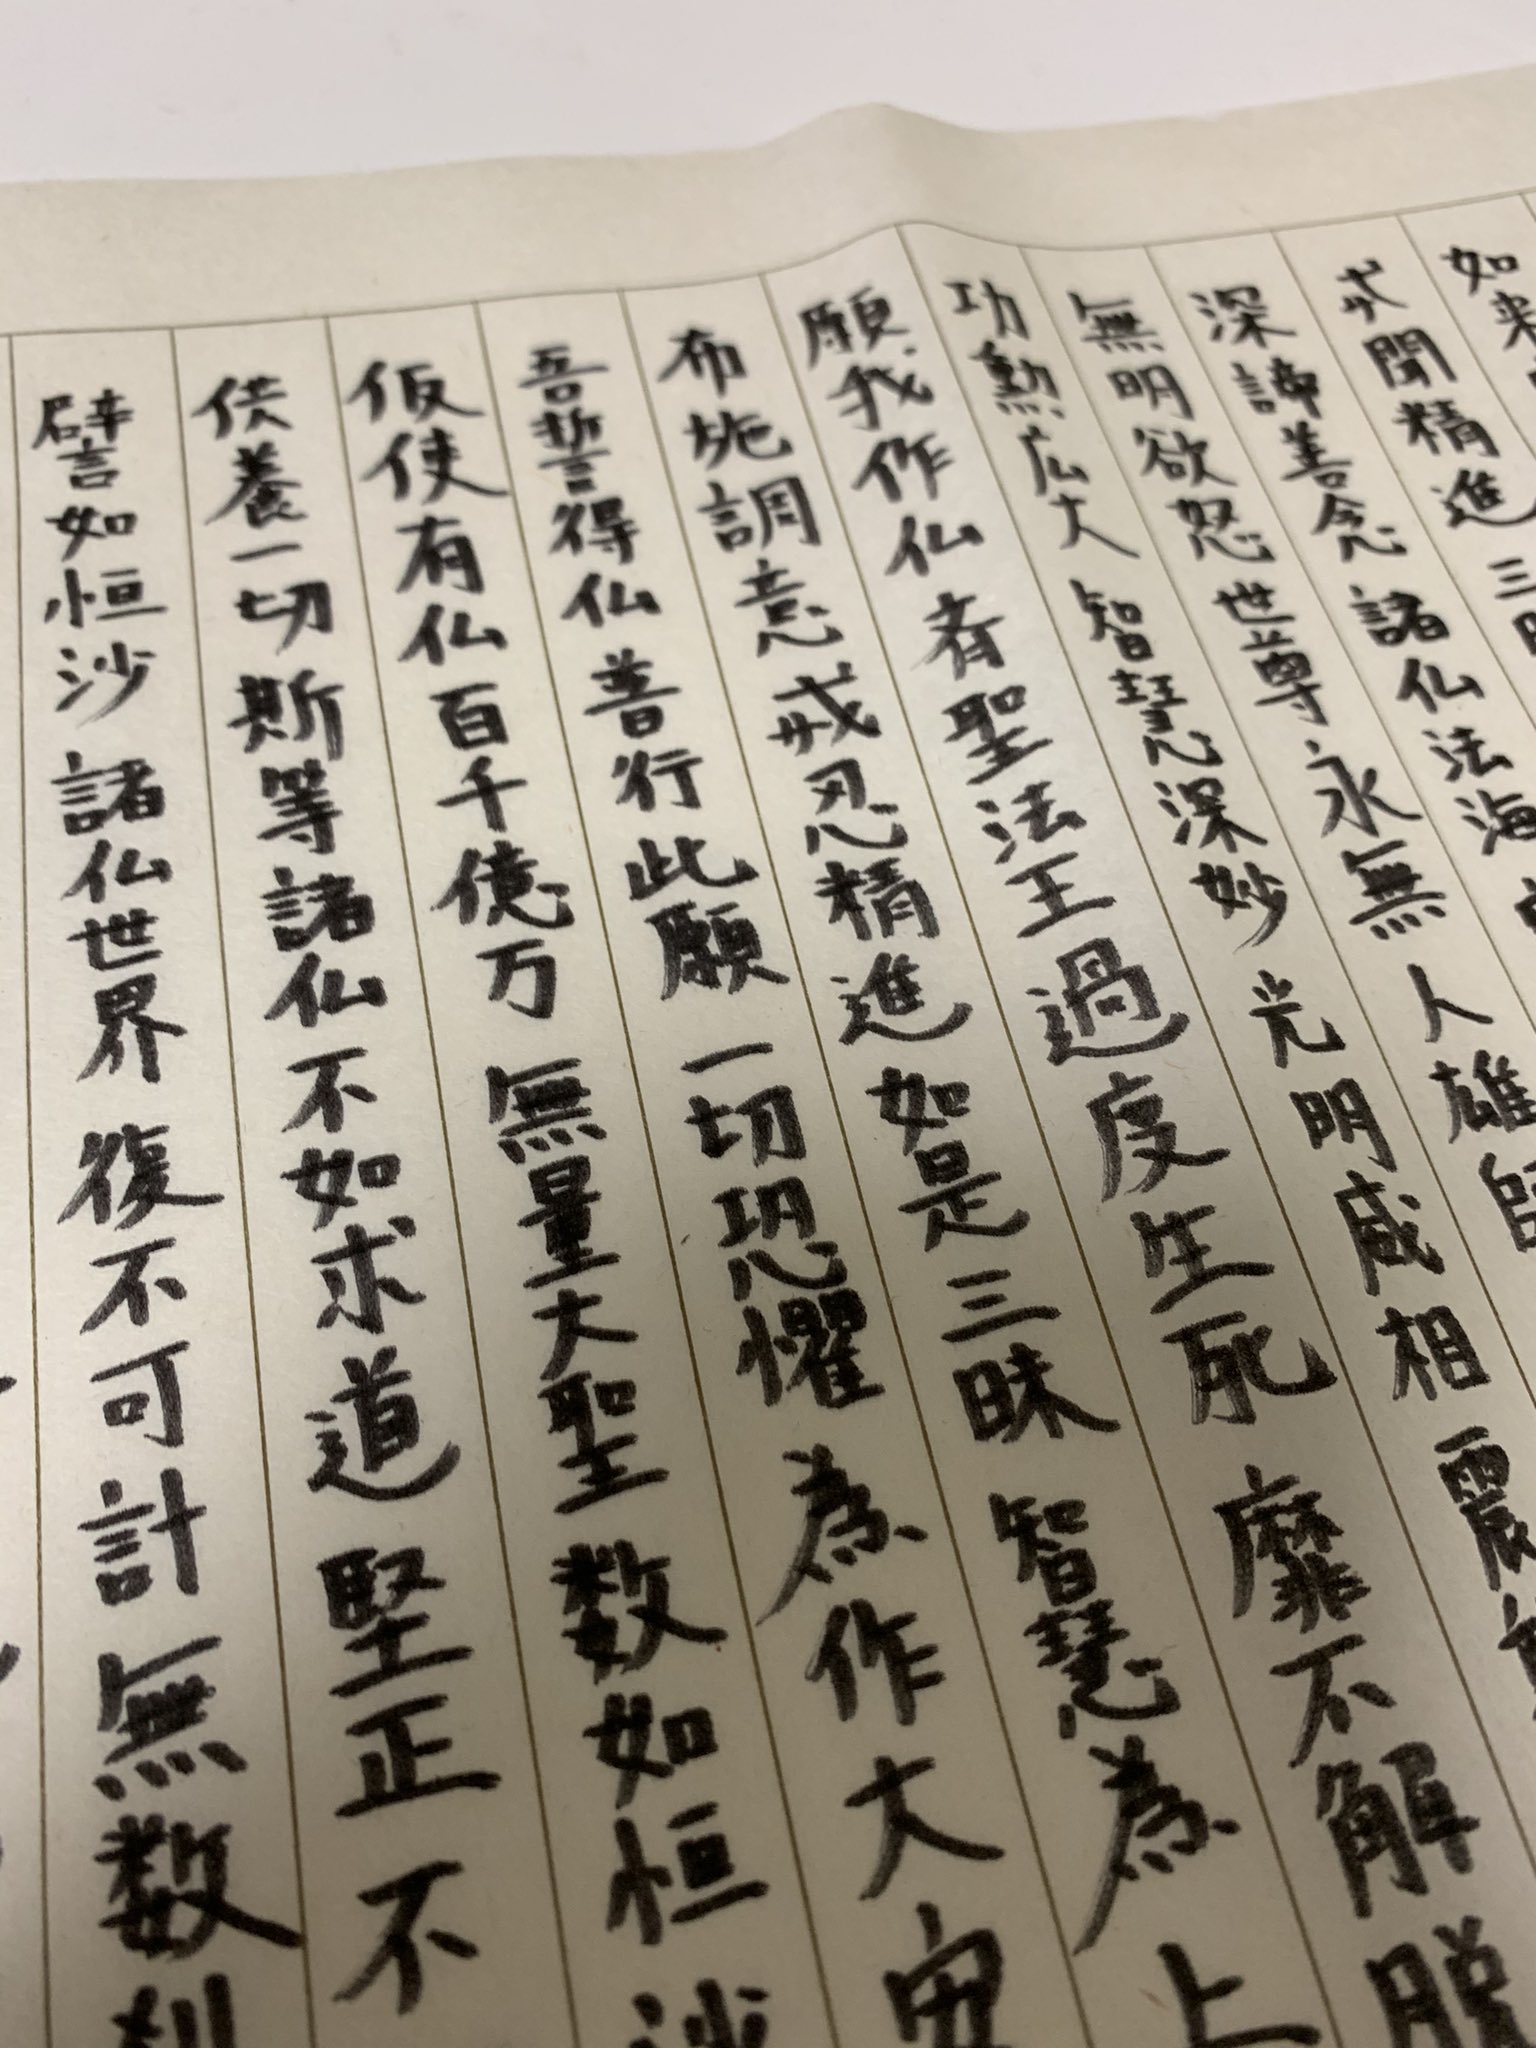 如来
戒聞精進 三
深諦善念 諸仏法海
無明欲怒 世尊永無 人雄師
功勲広大 智慧深妙 光明威相 震
願我作仏 斉聖法王 過度生死 靡不解脱
布施調意 戒忍精進 如是三昧 智慧為上
吾誓得仏 普行此願 一切恐懼 為作大安
仮使有仏 百千億万 無量大聖 数如恒沙
供養一切 斯等諸仏 不如求道 堅正不
譬如恒沙 諸仏世界 復不可計 無数刹